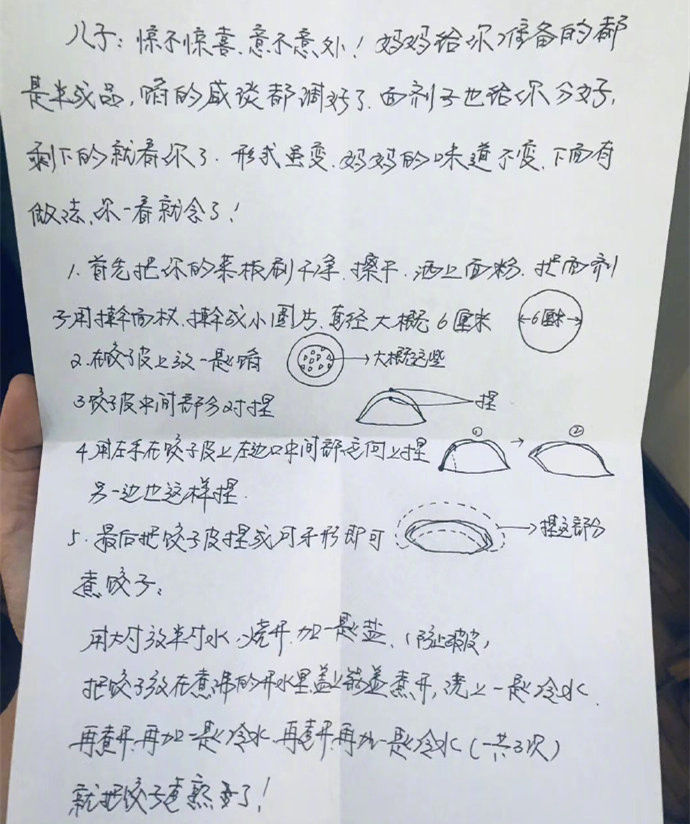 儿子：惊不惊喜、意不意外！妈妈给你准备的都
是半成品，馅的咸淡都调好了、面剂子也给你分好，
剩下的就看你了．形式虽变、妈妈的味道不变、下面有
做法、你一看就会了！
1. 首先把你的菜板刷干净、擦干、洒上面粉、把面剂
子用擀面杖、擀成小圆片、直径大概6厘米 6厘米
2. 在饺子皮上放一匙馅 大概这些
3 饺子皮中间部分对捏 捏
4. 用左手在饺子皮上左边口中间部定向上捏 ① ②
另一边也这样捏．
5. 最后把饺子皮捏成月牙形即可 捏这部分
煮饺子：
用大勺放半勺水、烧开、加一匙盐、（防止破皮）
把饺子放在煮沸的开水里盖上锅盖煮开，浇上一匙冷水．
再煮开，再加一匙冷水，再煮开再加一匙冷水（一共3次）
就把饺子煮熟了！